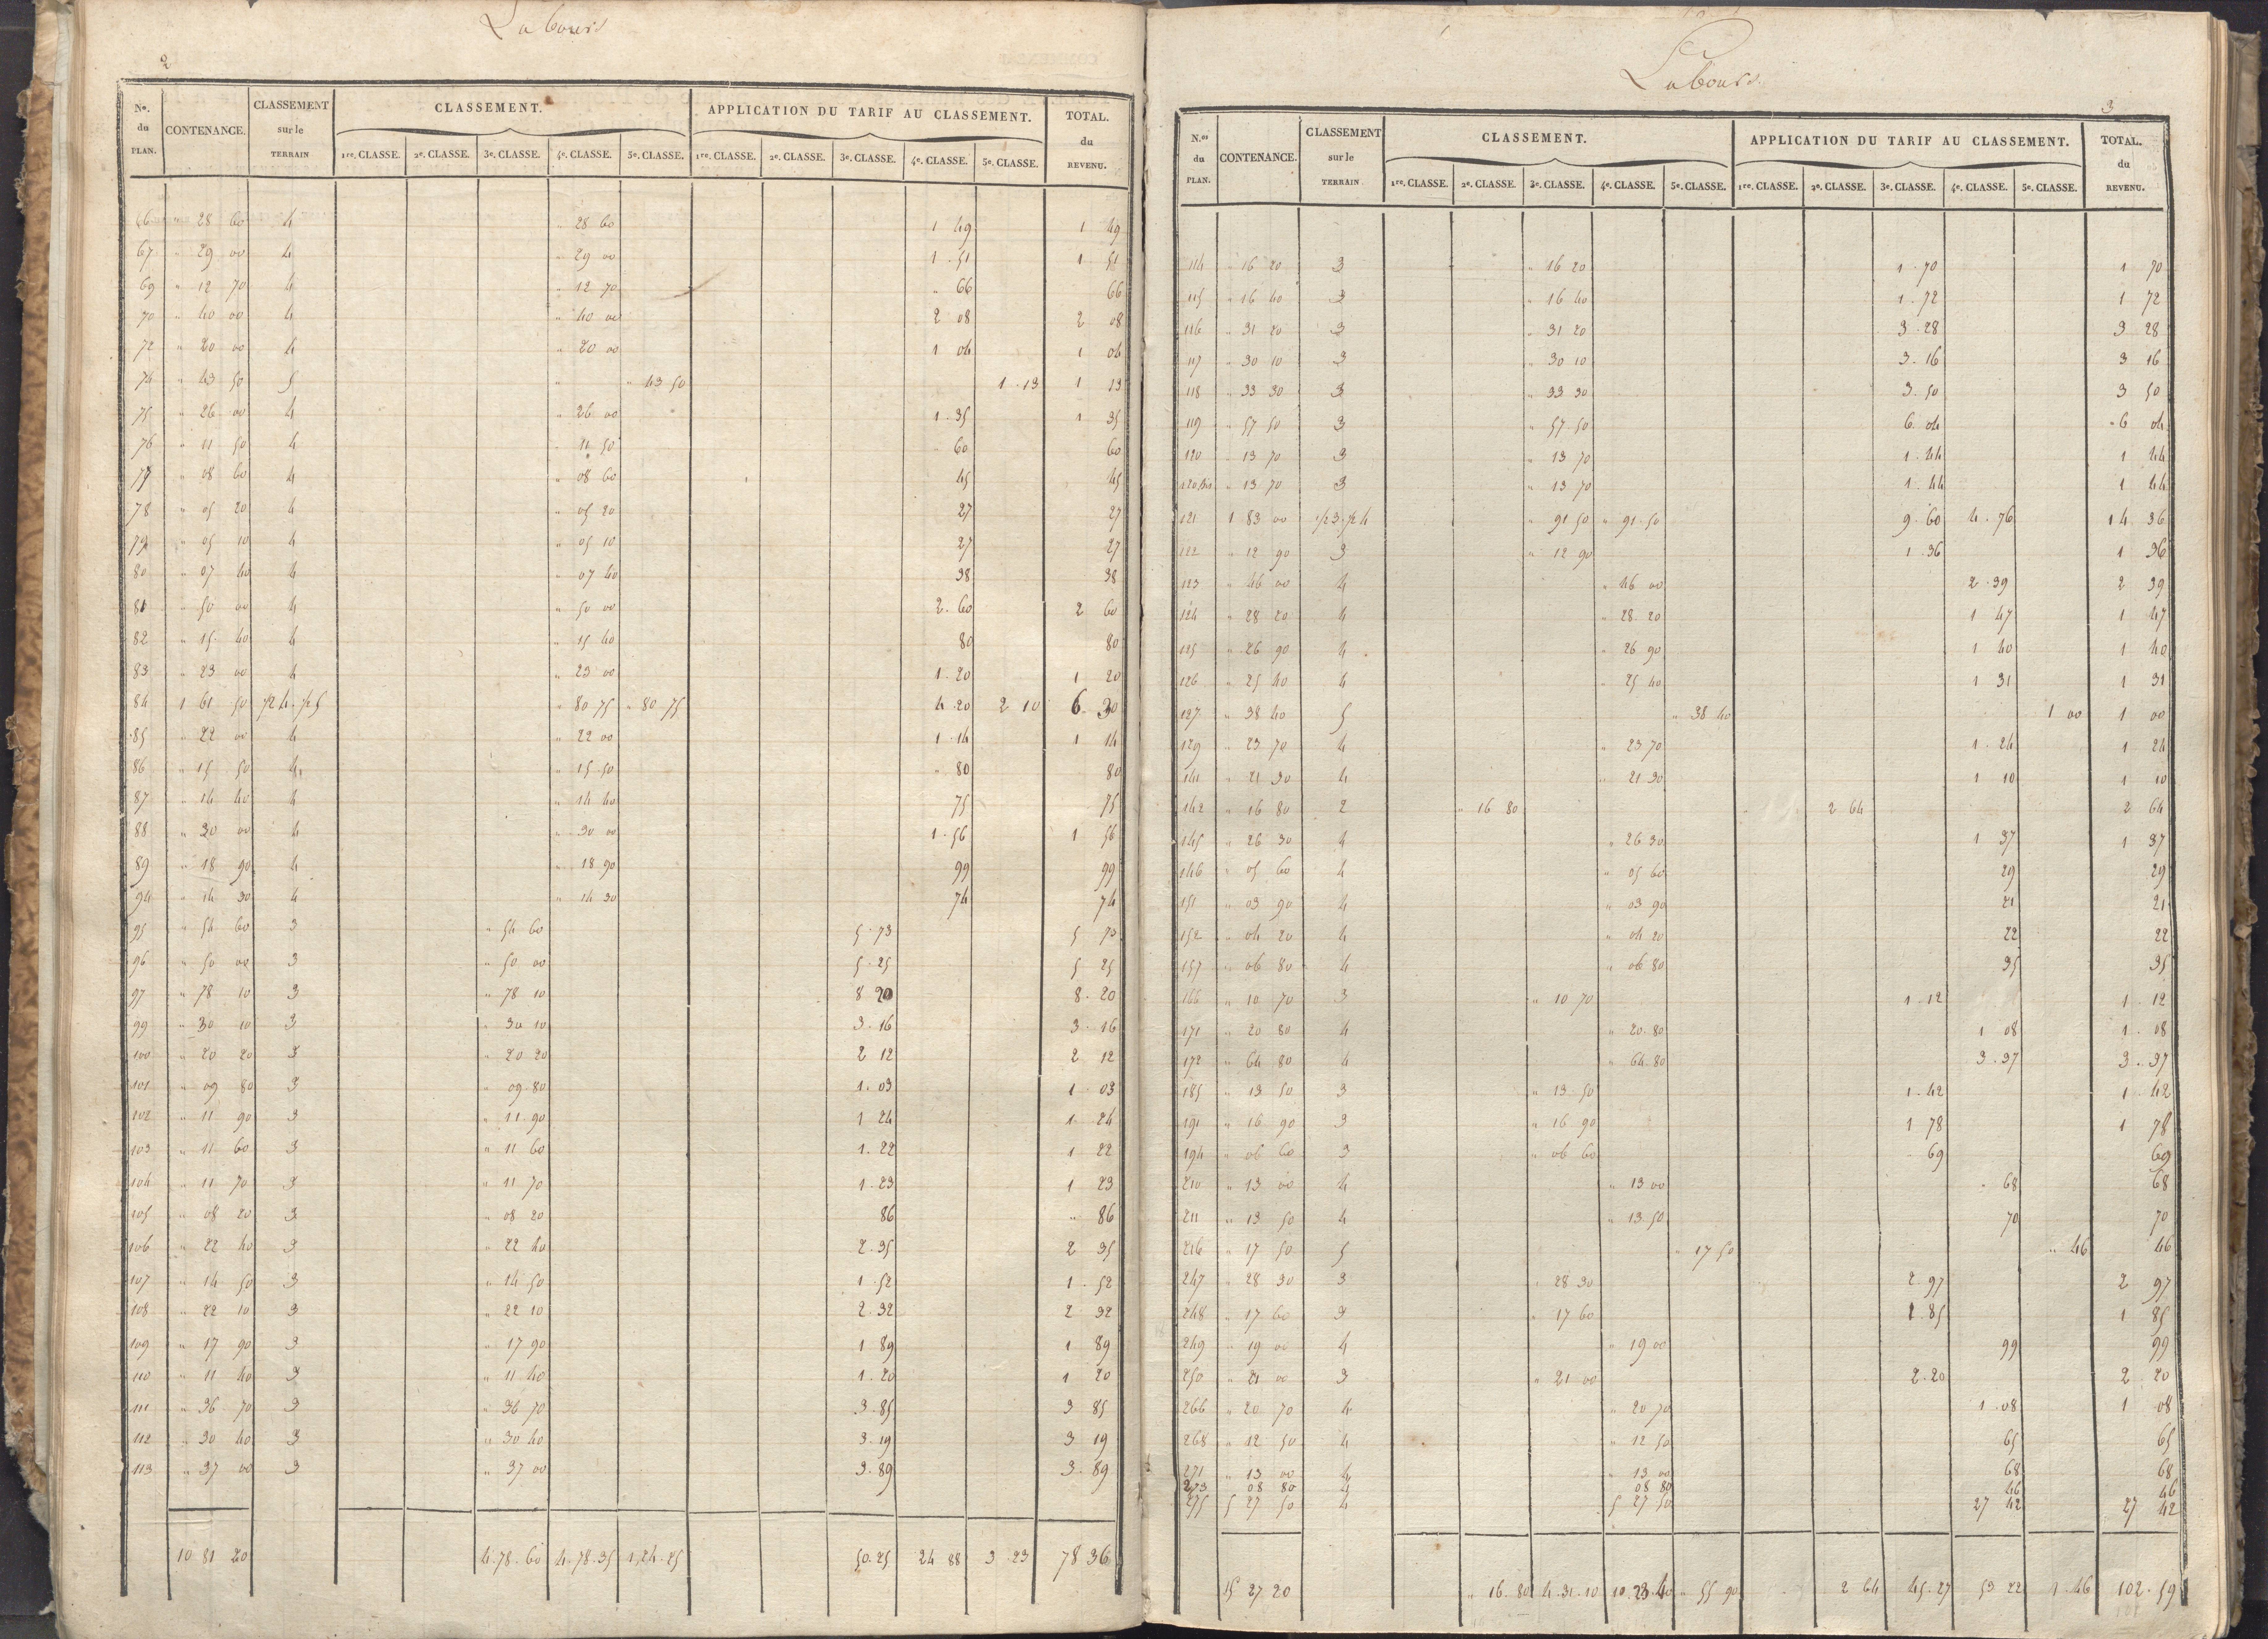 Labours
2
Nos. du PLAN. CONTENANCE. CLASSEMENT sur le TERRAIN CLASSEMENT. APPLICATION DU TARIF AU CLASSEMENT. TOTAL. du REVENU.
1re. CLASSE. 2e. CLASSE. 3e. CLASSE. 4e. CLASSE. 5e. CLASSE. 1re. CLASSE. 2e. CLASSE. 3e. CLASSE. 4e. CLASSE. 5e. CLASSE.
66 " 28 60 4 " 28 60 1 49 1 49
67 " 29 00 4 " 29 00 1.51 1 51
69 " 12 70 4 " 12 70 " 66 66
70 " 40 00 4 " 40 00 2 08 2 08
72 " 20 00 4 " 20 00 1 04 1 04
74 " 43 50 5 " " 43 50 1.13 1 13
75 " 26 00 4 " 26 00 1.35 1 35
76 " 11 50 4 " 11 50 " 60 60
77 " 08 60 4 " 08 60 45 45
78 " 05 20 4 " 05 20 27 27
79 " 05 10 4 " 05 10 27 27
80 " 07 40 4 " 07 40 38 38
81 " 50 00 4 " 50 00 2.60 2 60
82 " 15 40 4 " 15 40 80 80
83 " 23 00 4 " 23 00 1.20 1 20
84 1 61 50 1/2 4. 1/2 5 " 80 75 " 80 75 4.20 2 10 6.30
85 " 22 00 4 " 22 00 1.14 1 14
86 " 15 50 4 " 15.50 " 80 80
87 " 14 40 4 " 14 40 75 75
88 " 30 00 4 " 30 00 1.56 1 56
89 " 18 90 4 " 18.90 99 99
94 " 14 30 4 " 14 30 74 74
95 " 54 60 3 " 54 60 5.73 5 73
96 " 50 00 3 " 50 00 5.25 5 25
97 " 78 10 3 " 78 10 8 20 8.20
99 " 30 10 3 " 30 10 3.16 3.16
100 " 20 20 3 " 20 20 2 12 2 12
101 " 09 80 3 " 09.80 1.03 1 03
102 " 11 90 3 " 11.90 1 24 1 24
103 " 11 60 3 " 11 60 1.22 1 22
104 " 11 70 3 " 11 70 1.23 1 23
105 " 08 20 3 " 08 20 86 " 86
106 " 22 40 3 " 22 40 2.35 2 35
107 " 14 50 3 " 14 50 1.52 1.52
108 " 22 10 3 " 22 10 2.32 2 32
109 " 17 90 3 " 17.90 1 89 1 89
110 " 11 40 3 " 11 40 1.20 1 20
111 " 36 70 3 " 36 70 3.85 3 85
112 " 30 40 3 " 30 40 3.19 3 19
113 " 37 00 3 " 37 00 3.89 3.89
10 81 20 4.78.60 4.78.35 1,24.25 50.25 24 88 3 23 78 36
Labours.
3
N.os du PLAN. CONTENANCE. CLASSEMENT sur le TERRAIN CLASSEMENT. APPLICATION DU TARIF AU CLASSEMENT. TOTAL. du REVENU.
1re. CLASSE. 2e. CLASSE. 3e. CLASSE. 4e. CLASSE. 5e. CLASSE. 1re. CLASSE. 2e. CLASSE. 3e. CLASSE. 4e. CLASSE. 5e. CLASSE.
114 " 16 20 3 " 16 20 1.70 1 70
115 " 16 40 3 " 16 40 1.72 1 72
116 " 31 20 3 " 31 20 3.28 3 28
117 " 30 10 3 " 30 10 3.16 3 16
118 " 33 30 3 " 33 30 3.50 3 50
119 " 57 50 3 " 57.50 6.04 6 04
120 " 13 70 3 " 13 70 1.44 1 44
120 bis " 13 70 3 " 13 70 1.44 1 44
121 1 83 00 1/2 3. 1/2 4 " 91 50 " 91.50 9.60 4.76 14 36
122 " 12 90 3 " 12 90 1.36 1 36
123 " 46 00 4 " 46 00 2.39 2 39
124 " 28 20 4 " 28.20 1 47 1 47
125 " 26 90 4 " 26 90 1 40 1 40
126 " 25 40 4 " 25 40 1 31 1 31
127 " 38 40 5 " 38 40 1 00 1 00
129 " 23 70 4 " 23 70 1.24 1 24
141 " 21 30 4 " 21.30 1 10 1 10
142 " 16 80 2 " 16 80 2 64 2 64
145 " 26 30 4 " 26 30 1 37 1 37
146 " 05 60 4 " 05 60 29 29
151 " 03 90 4 " 03 90 21 21
152 " 04 20 4 " 04 20 22 22
157 " 06 80 4 " 06 80 35 35
166 " 10 70 3 " 10 70 1.12 1.12
171 " 20 80 4 " 20.80 1 08 1.08
172 " 64 80 4 " 64.80 3.37 3.37
185 " 13 50 3 " 13 50 1.42 1.42
191 " 16 90 3 " 16 90 1 78 1 78
194 " 06 60 3 " 06 60 " 69 69
210 " 13 00 4 " 13 00 " 68 68
211 " 13 50 4 " 13.50 70 70
216 " 17 50 5 " 17 50 " 46 46
247 " 28 30 3 " 28 30 2.97 2 97
248 " 17 60 3 " 17 60 1.85 1 85
249 " 19 00 4 " 19 00 99 99
250 " 21 00 3 " 21 00 2.20 2 20
266 " 20 70 4 " 20 70 1.08 1 08
268 " 12 50 4 " 12 50 65 65
271 " 13 00 4 " 13 00 68 68
273 08 80 4 08 80 46 46
275 5 27 50 4 5 27 50 27 42 27 42
15 27 20 " 16.80 4.31.10 10.23.40 " 55.90 2 64 45.27 53 22 1.46 102.59